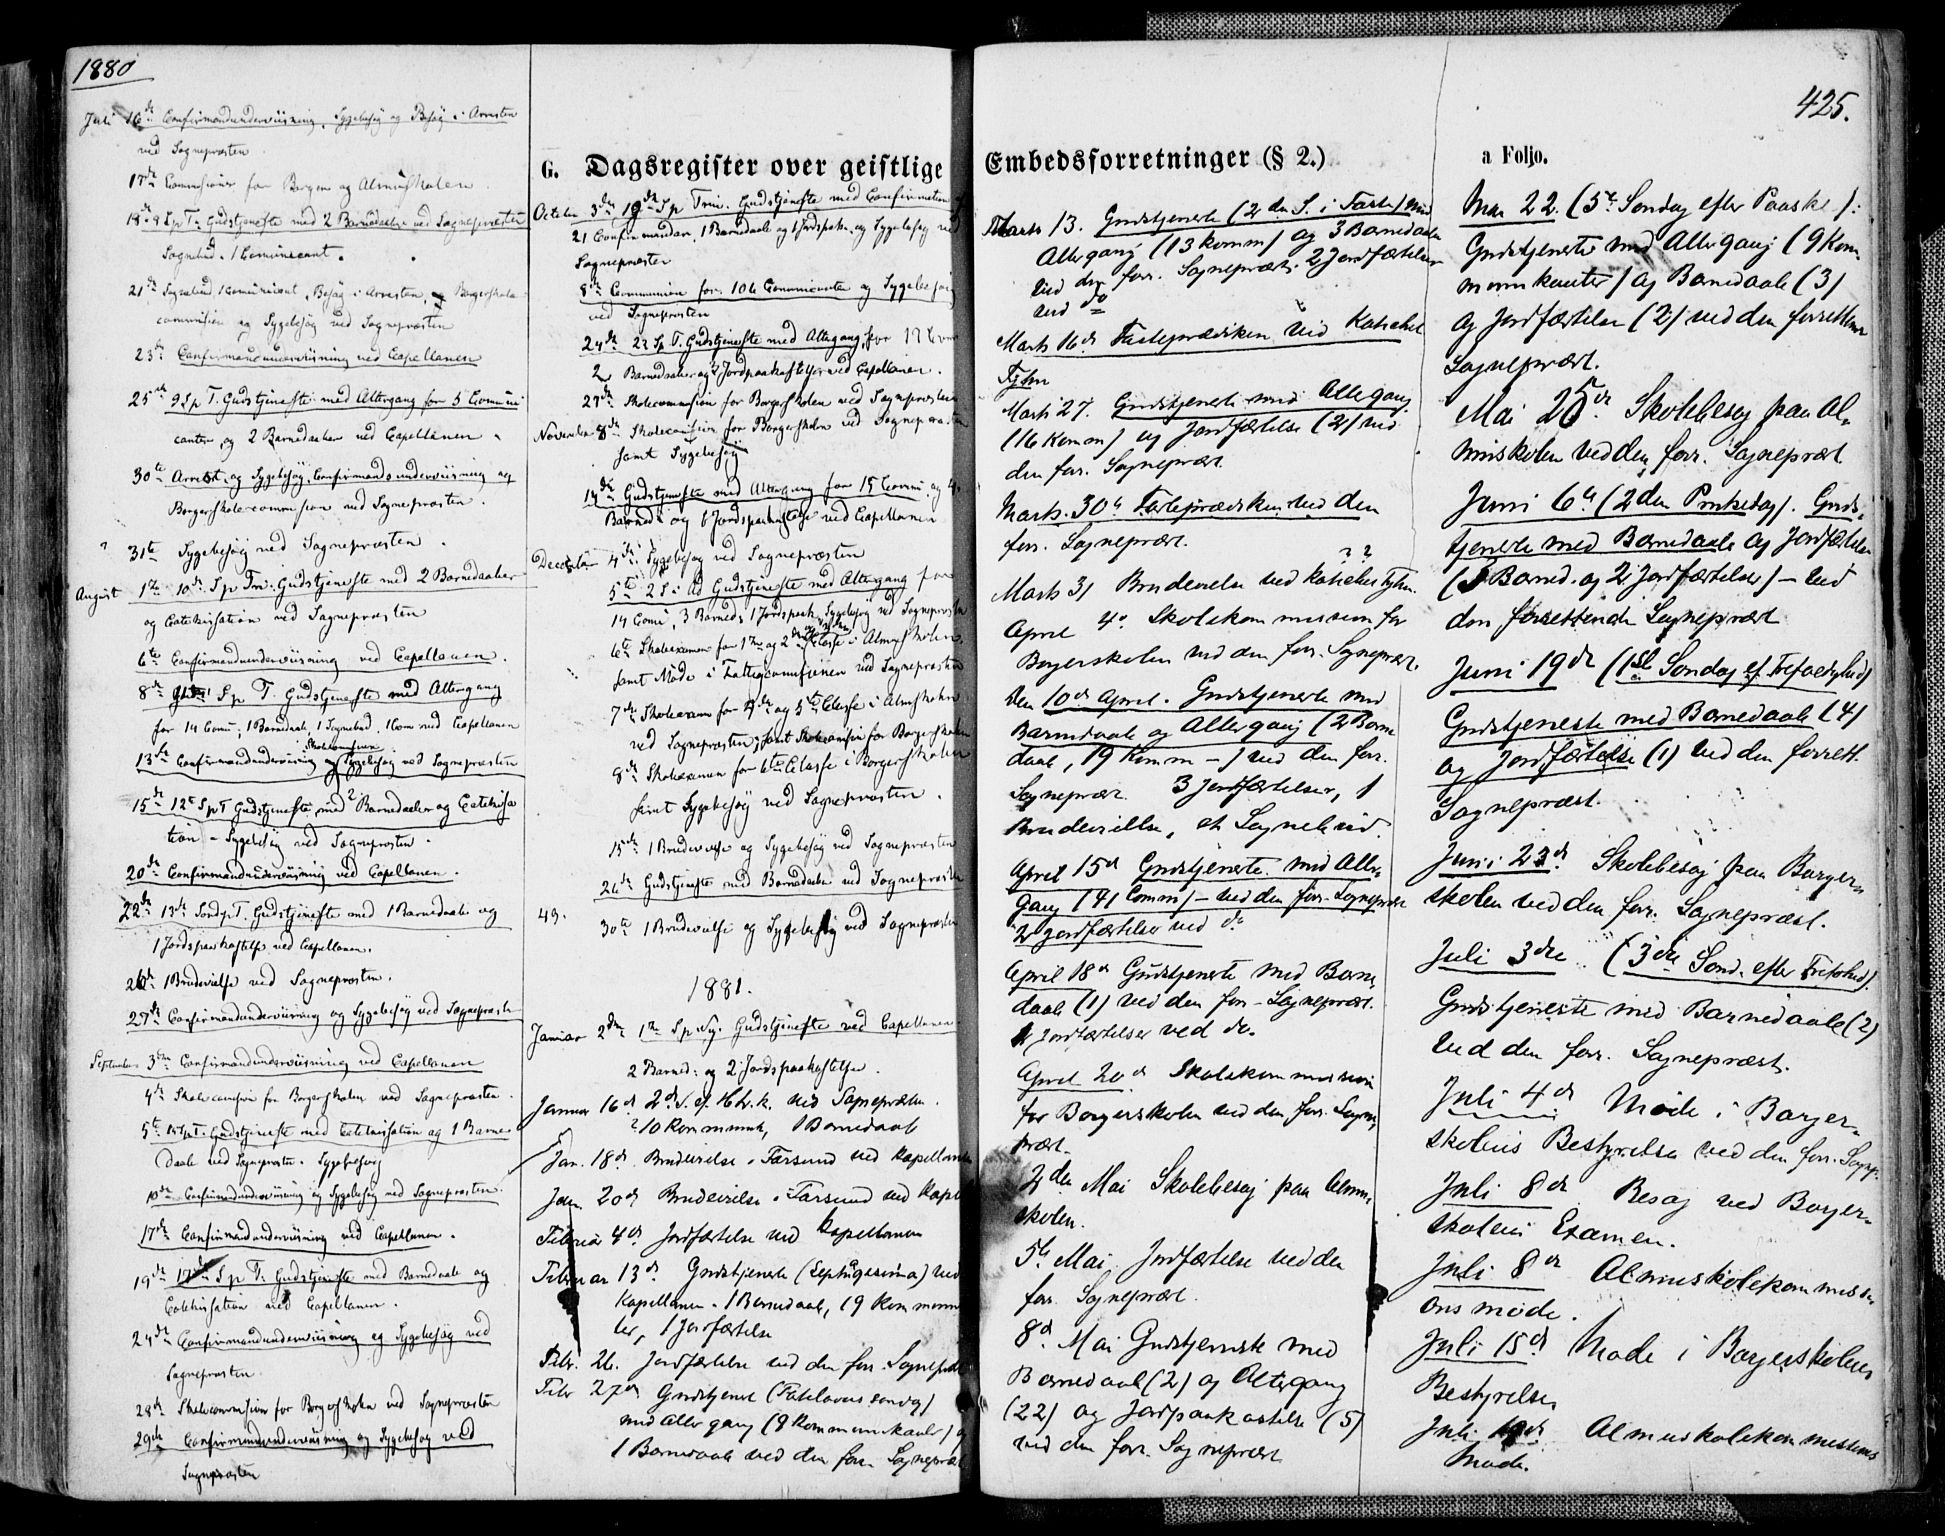 1880
Juli 16de Confirmandunderviisning, Sygebesøg og Besøg i Arresten
ved Sognepræsten.
17de Commission for Borger og Almueskolen.
18de 8 Sp T. Gudstjeneste med 2 Barnedaaber ved Sognepræsten
Sognebud. 1 Communicant.
21de Sognebud 1 Communicant, Besøg i Arresten, Borgerskole
commission og Sygebesøg ved Sognepræsten
23de Confirmandunderviisning ved Capellanen
25de 9 Sp T. Gudstjeneste med Altergang for 5 Communi
canter, og 2 Barnedaaber ved Capellanen.
30te Arrest og Sygebesøg, Confirmandunderviisning og
Borgerskolecommission ved Sognepræsten.
31te Sygebesøg ved Sognepræsten.
August 1ste 10de Sp Tr. Gudstjeneste med 2 Barnedaaber
og Catekisation ved Sognepræsten
6te Confirmandunderviisning ved Capellanen.
8de Sp T. Gudstjeneste med Altergang
for 14 Comu, 1 Barnedaab, 1 Sognebud, 1 Com ved Capellanen
Skolecommission
13de Confirmandunderviisning og Sygebesøg ved Sognepræsten
15de 12te Sp T Gudstjeneste med 2 Barnedaaber og Catekisa
tion - Sygebesøg ved Sognepræsten.
20de Confirmandunderviisning ved Capellanen.
22de 13de Sond p T. Gudstjeneste med 1 Barnedaab og
1 Jordspaakastelse ved Capellanen.
26de 1 Brudevielse ved Sognepræsten.
27de Confirmandunderviisning og Sygebesøg ved Sognepræsten
September 3die Confirmandunderviisning ved Capellanen
4de Skolecommission for Borgerskolen ved Sognepræsten.
5te Sp T. Gudstjeneste med Catekisation og 1 Barne-
daab ved Sognepræsten. Sygebesøg
10de Confirmandunderviisning og Sygebesøg ved Sognepræsten.
17de Confirmandunderviisning ved Capellanen.
19de 17de Sp T. Gudstjeneste med Barnedaab og
Catekisation ved Capellanen.
24de Confirmandunderviisning og Sygebesøg ved
Sognepræsten.
28de Skolecommission for Borgerskolen ved Sognepræsten
29de Confirmandunderviisning og Sygebesøg ved
Sognepræsten
G. Dagsregister over geistlige
October 3die 19de Sp Trin. Gudstjeneste med Confirmation af
21 Confirmander, 1 Barnedaab og 1 Jordspaak. og Sygebesøg ved
Sognepræsten
8de Communion for 106 Communicanter og Sygebesøg
ved Sognepræsten
24de 22 Sp T. Gudstjeneste med Altergang for 12 Com
2 Barnedaaber og Jordpaakastelser ved Capellanen.
27de Skolecommission for Borgerskolen ved Sognepræsten
November 8de Skolecommission for Borgerskolen ved Sognepræsten
samt Sygebesøg
14de Gudstjeneste med Altergang for 15 Comu. og 4
Barned. og 6 Jordspaakastelse ved Capellanen
December 4de Sygebesøg ved Sognepræsten
5te 2 S. i Ad Gudstjeneste med Altergang for
14 Comu, 3 Barned, 1 Jordspaak. Sygebesøg ved Sognepræsten
6te Skoleexamen for 1ste og 2den Classe i Almueskolen,
samt Møde i Fattigcommissionen ved Sognepræsten
7de Skoleexam for 4de og 5te Classe i Almueskolen
ved Sognepræsten; samt Skolecommission for Borgerskolen
8de Skoleexamen for Classe i Borgerskolen
samt Sygebesøg ved Sognepræsten.
15de 1 Brudevielse og Sygebesøg ved Sognepræsten
26de Gudstjeneste med Barnedaaber ved Sognepræsten
49. 30te 1 Brudevielse og Sygebesøg ved Sognepræsten
1881.
Januar 2den 1ste Sp Ny. Gudstjeneste ved Capellanen
2 Barned: og 2 Jordspaakastelse.
Januar 16de 2d S. ef. H. 3 k. ved Sognepræsten.
10 Kommunik, 1 Barnedaab
Jan. 18de Brudevielse i Farsund ved Kapellanen
Jan. 20de Brudevielse i Farsund ved Kapel
Februar 4de Jordfæstelse ved Kapellanen
Februar 13de Gudstjeneste (Septugesima) ved
Kapellanen. 1 Barnedaab, 19 Kommuni
ter, 1 Jordfæstelse
Febr. 26. Jordfæstelse ved den forr. Sognepræst
Febr 27de Gudstjenest (Fastelavnssøndag)
med Altergang (9 Kommunikanter) og
1 Barnedaab ved den forr. Sognepræst
425.
Embedsforretninger (§ 2.)
a Foljo.
Marts 13. Gudstjeneste (2den S. i Faste) med
Altergang (13 Komm) og 3 Barnedaab
ved den forr. Sognepræst. 2 Jordfæstelser
ved do
Marts 16de Fasteprædiken ved Kateket
Tyhn
Marts 27. Gudstjeneste med Altergang
(16 Komm) og Jordfæstelse (2) ved
den forr. Sognepræst.
Marts. 30te Fasteprædiken ved den
forr. Sognepræst.
Marts 31 Brudevielse ved Kateket Tyhn.
April 4de Skolekommission for
Borgerskolen ved den forr. Sognepræst.
den 10de April. Gudstjeneste med
Barnedaab og Altergang (2 Barne
daab, 19 Komm -) ved den forr.
Sognepræst. 3 Jordfæstelser, 1
Brudevielse, et Sognebud.
April 15de Gudstjeneste med Alter-
gang (41 Comm) - ved den forr. Sognepræst
2 Jordfæstelser ved do
April 18de Gudstjeneste med Barne-
daab (1) ved den forr. Sognepræst.
Jordfæstelser ved do.
April 20de Skolekommission
for Borgerskolen ved den forr. Sogne-
præst.
2den Mai Skolebesøg paa Almue-
skolen.
5te Mai Jordfæstelse ved den
forr. Sognepræst.
8de Mai Gudstjeneste med
Barnedaab (2) og Altergang
(22) og Jordpaakastelse (5)
ved den forr. Sognepræst
Mai 22. (5te Søndag efter Paaske):
Gudstjeneste med Altergang (9 Kom-
munikanter) og Barnedaab (3)
og Jordfæstelse (2) ved den forrettende
Sognepræst.
Mai 25de Skolebesøg paa Al-
mueskolen ved den forr. Sognepræst
Juni 6te (2den Pinsedag). Guds-
tjeneste med Barnedaab og Jordfæstelse
(3 Barned. og 2 Jordfæstelser) - ved
den forrettende Sognepræst
Juni 19de (1ste Søndag ef. Trefoldighed)
Gudstjeneste med Barnedaab (4)
og Jordfæstelse (1) ved den forrett.
Sognepræst.
Juni 23de Skolebesøg paa Borger-
skolen ved den forr. Sognepræst.
Juli 3die (3die Sønd. efter Trefoldhed).
Gudstjeneste med Barnedaab (2)
ved den forr. Sognepræst.
Juli 4de Møde i Borger-
skolens Bestyrelse ved den forr. Sognp.
Juli 8de Besøg ved Borger-
skolens Examen.
Juli 8de Almueskolekommissi-
onsmøde.
Juli 15de Møde i Borgerskolens
Bestyrelse.
Juli 19de Almueskolekommissions
Møde.